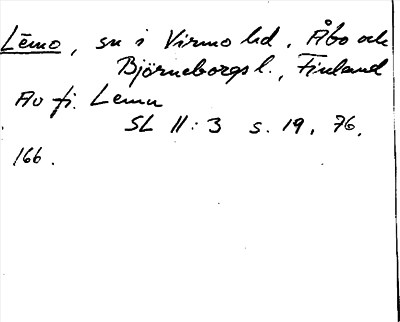 Lēmo, sn i Virmo hd, Åbo och
Björneborgs l., Finland
Av fi. Lemu
SL II:3 s. 19, 76,
166.